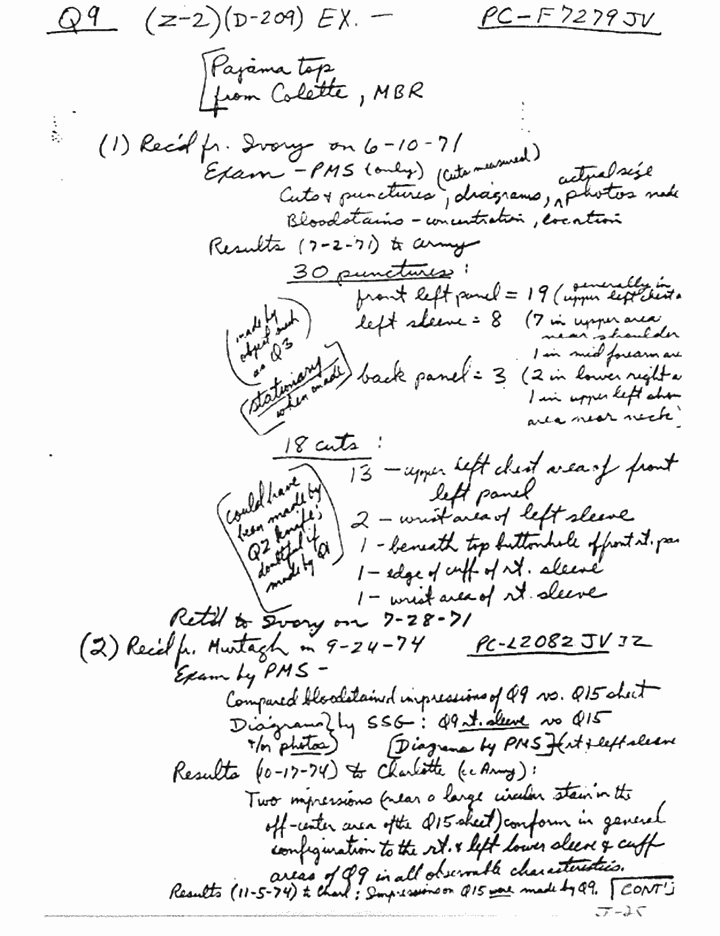 Q9 (Z-2)(D-209) EX. — PC-F7279JV
Pajama top
from Colette, MBR
(1) Rec'd fr. Ivory on 6-10-71
Exam - PMS (only) (Cuts measured)
Cuts & punctures, diagrams, actual size photos made
Bloodstains - concentration, location
Results (7-2-71) to Army
30 punctures:
front left panel = 19 (generally in upper left chest a
left sleeve = 8 (7 in upper area
near shoulder
1 in mid forearm are
made by
object such
as Q3
stationary
when made
back panel = 3 (2 in lower right a
1 in upper left
area near neck)
18 cuts:
13 - upper left chest area of front
left panel
2 - wrist area of left sleeve
1 - beneath top buttonhole of front rt. pan
1 - edge of cuff of rt. sleeve
1 - wrist area of rt. sleeve
could have
been made by
Q2 knife;
doubtful if
made by Q1
Ret'd to Ivory on 7-28-71
(2) Rec'd fr. Murtagh on 9-24-74 PC-L2082 JV JZ
Exam by PMS -
Compared bloodstained impressions of Q9 vs. Q15 sheet
Diagrams} by SSG: Q9 rt. sleeve vs Q15
&/or photos) [Diagrams by PMS] (rt & left sleeve
Results (10-17-74) to Charlotte (cc Army):
Two impressions (near a large circular stain in the
off-center area of the Q15 sheet) conform in general
configuration to the rt. & left lower sleeve & cuff
areas of Q9 in all observable characteristics.
Results (11-5-74) to Charl: Impressions on Q15 were made by Q9. CONT'
J-25